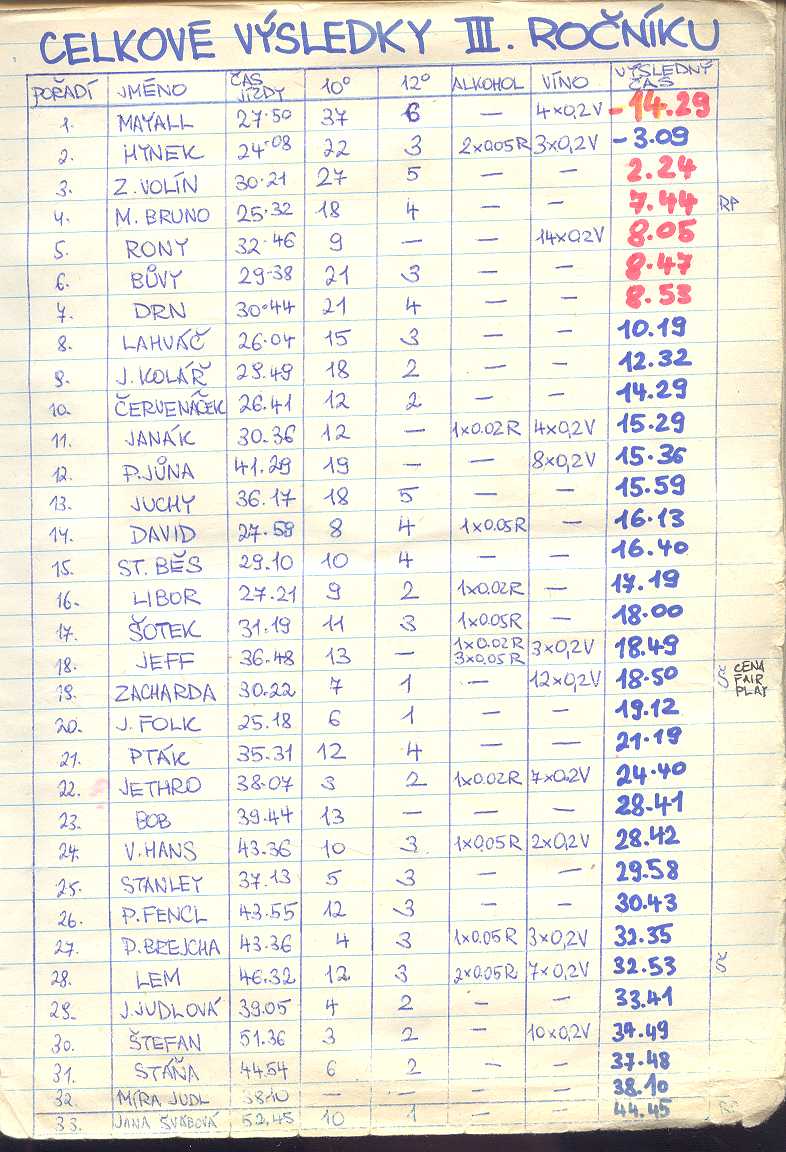 CELKOVÉ VÝSLEDKY III. ROČNÍKU
POŘADÍ JMÉNO ČAS JÍZDY 10° 12° ALKOHOL VÍNO VÝSLEDNÝ ČAS
1. MAYALL 27.50 37 6 — 4×0,2V -14.29
2. HYNEK 24.08 22 3 2×0.05R 3×0,2V -3.09
3. Z. VOLÍN 30.21 27 5 — — 2.24
4. M. BRUNO 25.32 18 4 — — 7.44 RP
5. RONY 32.46 9 — — 14×0,2V 8.05
6. BŮVY 29.38 21 3 — — 8.47
7. DRN 30.44 21 4 — — 8.53
8. LAHVÁČ 26.04 15 3 — — 10.19
9. J. KOLÁŘ 29.49 18 2 — — 12.32
10. ČERVENÁČEK 26.41 12 2 — — 14.29
11. JANÁK 30.36 12 — 1×0.02R 4×0,2V 15.29
12. P. JŮNA 41.29 19 — — 8×0,2V 15.36
13. JUCHY 36.17 18 5 — — 15.59
14. DAVID 27.59 8 4 1×0.05R — 16.13
15. ST. BĚS 29.10 10 4 — — 16.40
16. LIBOR 27.21 9 2 1×0.02R — 17.19
17. ŠOTEK 31.19 11 3 1×0.05R — 18.00
18. JEFF 36.48 13 — 1×0.02R 3×0.05R 3×0,2V 18.49
19. ZACHARDA 30.22 7 1 — 12×0,2V 18.50 Š CENA FAIR PLAY
20. J. FOLK 25.18 6 1 — — 19.12
21. PTÁK 35.31 12 4 — — 21.19
22. JETHRO 38.07 3 2 1×0.02R 7×0.2V 24.40
23. BOB 39.44 13 — — — 28.41
24. V. HANS 43.36 10 3 1×0.05R 2×0,2V 28.42
25. STANLEY 37.13 5 3 — — 29.58
26. P. FENCL 43.55 12 3 — — 30.43
27. P. BREJCHA 43.36 4 3 1×0.05R 3×0,2V 32.35
28. LEM 46.32 12 3 2×0.05R 7×0,2V 32.53 Š
29. J. JUDLOVÁ 39.05 4 2 — — 33.41
30. ŠTEFAN 51.36 3 2 — 10×0,2V 34.49
31. STÁŇA 44.54 6 2 — — 37.48
32. MÍRA JUDL 38.10 — — — — 38.10
33. JANA ŠVÁBOVÁ 52.45 10 1 — — 44.45